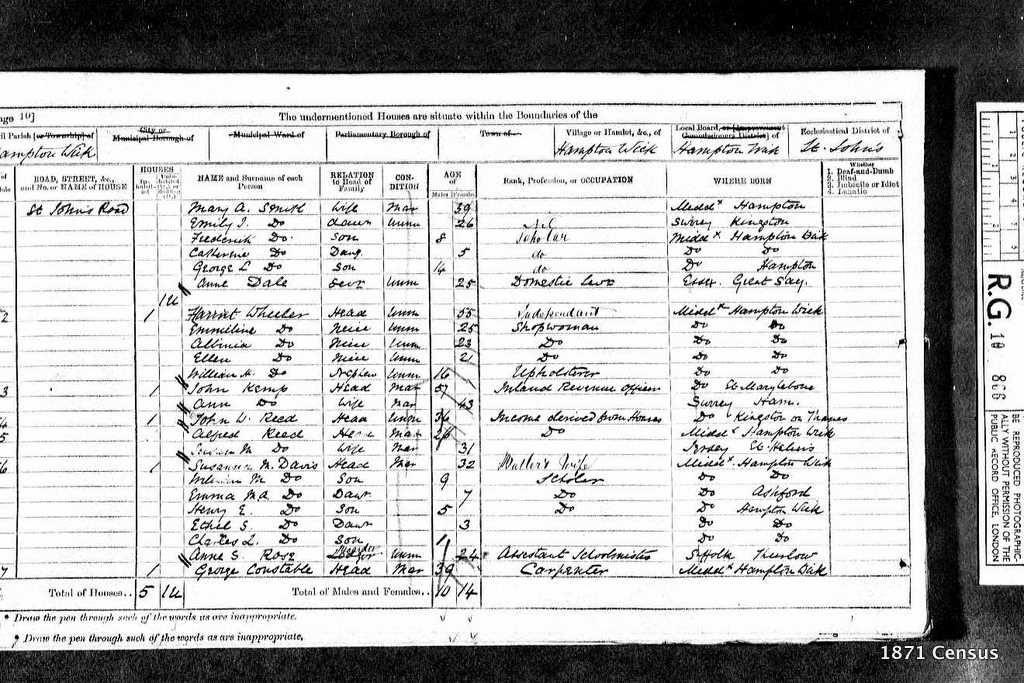 age 10]
The undermentioned Houses are situate within the Boundaries of the
il Parish [or Township] of
City or Municipal Borough of
Municipal Ward of
Parliamentary Borough of
Town of
Village or Hamlet, &c., of
Local Board, or [Improvement Commissioners District] of
Ecclesiastical District of
ampton Wick
Hampton Wick
Hampton Wick
St. John's
ROAD, STREET, &c., and No. or NAME of HOUSE
HOUSES
NAME and Surname of each Person
RELATION to Head of Family
CON- DITION
AGE of
Males Females
Rank, Profession, or OCCUPATION
WHERE BORN
Whether
1. Deaf-and-Dumb
2. Blind
3. Imbecile or Idiot
4. Lunatic
St John's Road Mary A. Smith Wife Mar 39 Middx Hampton
Emily J. Do Unm 26 Surrey Kingston
Frederick Do Son 8 Scholar Middx Hampton Wick
Catherine Do Daug. 5 do Do Do
George L Do Son 14 do Do Hampton
Anne Dale Serv Unm 25 Domestic Serv Essex
1U
2 1 Harriet Wheeler Head Unm 55 Independant Middx Hampton Wick
Emmeline Do Neice Unm 25 Shopwoman Do Do
Albinia Do Neice Unm 23 Do Do Do
Ellen Do Neice Unm 21 Do Do Do
William H. Do Nephew Unm 16 Upholsterer Do Do
3 1 John Kemp Head Mar 57 Inland Revenue Officer Do St Marylebone
Ann Do Wife Mar 43 Surrey Ham.
4 1 John W. Reed Head Unm 34 Income derived from Houses Do Kingston on Thames
5 Alfred Reed Head Mar 26 Do Middx Hampton Wick
M Do Wife Mar 31 Jersey St Heliers
6 1 Susannah M. Davis Head Mar 32 Wife Middx Hampton Wick
William M Do Son 9 Scholar Do Do
Emma Do Daur 7 Do Do Ashford
Henry E. Do Son 5 Do Do Hampton Wick
Ethel S. Do Daur 3 Do Do
Charles L. Do Son 1 Do Do
Anne S Rose Unm 24 Assestant Schoolmistress Suffolk Thurlow
7 1 George Constable Head Mar 39 Carpenter Middx Hampton Wick
Total of Houses.. 5 1U Total of Males and Females.. 10 14
* Draw the pen through such of the words as are inappropriate.
Draw the pen through such of the words as are inappropriate.
R.G. 10 866
BE REPRODUCED PHOTOGRAPHIC-
ALLY WITHOUT PERMISSION OF THE
PUBLIC RECORD OFFICE, LONDON
1871 Census